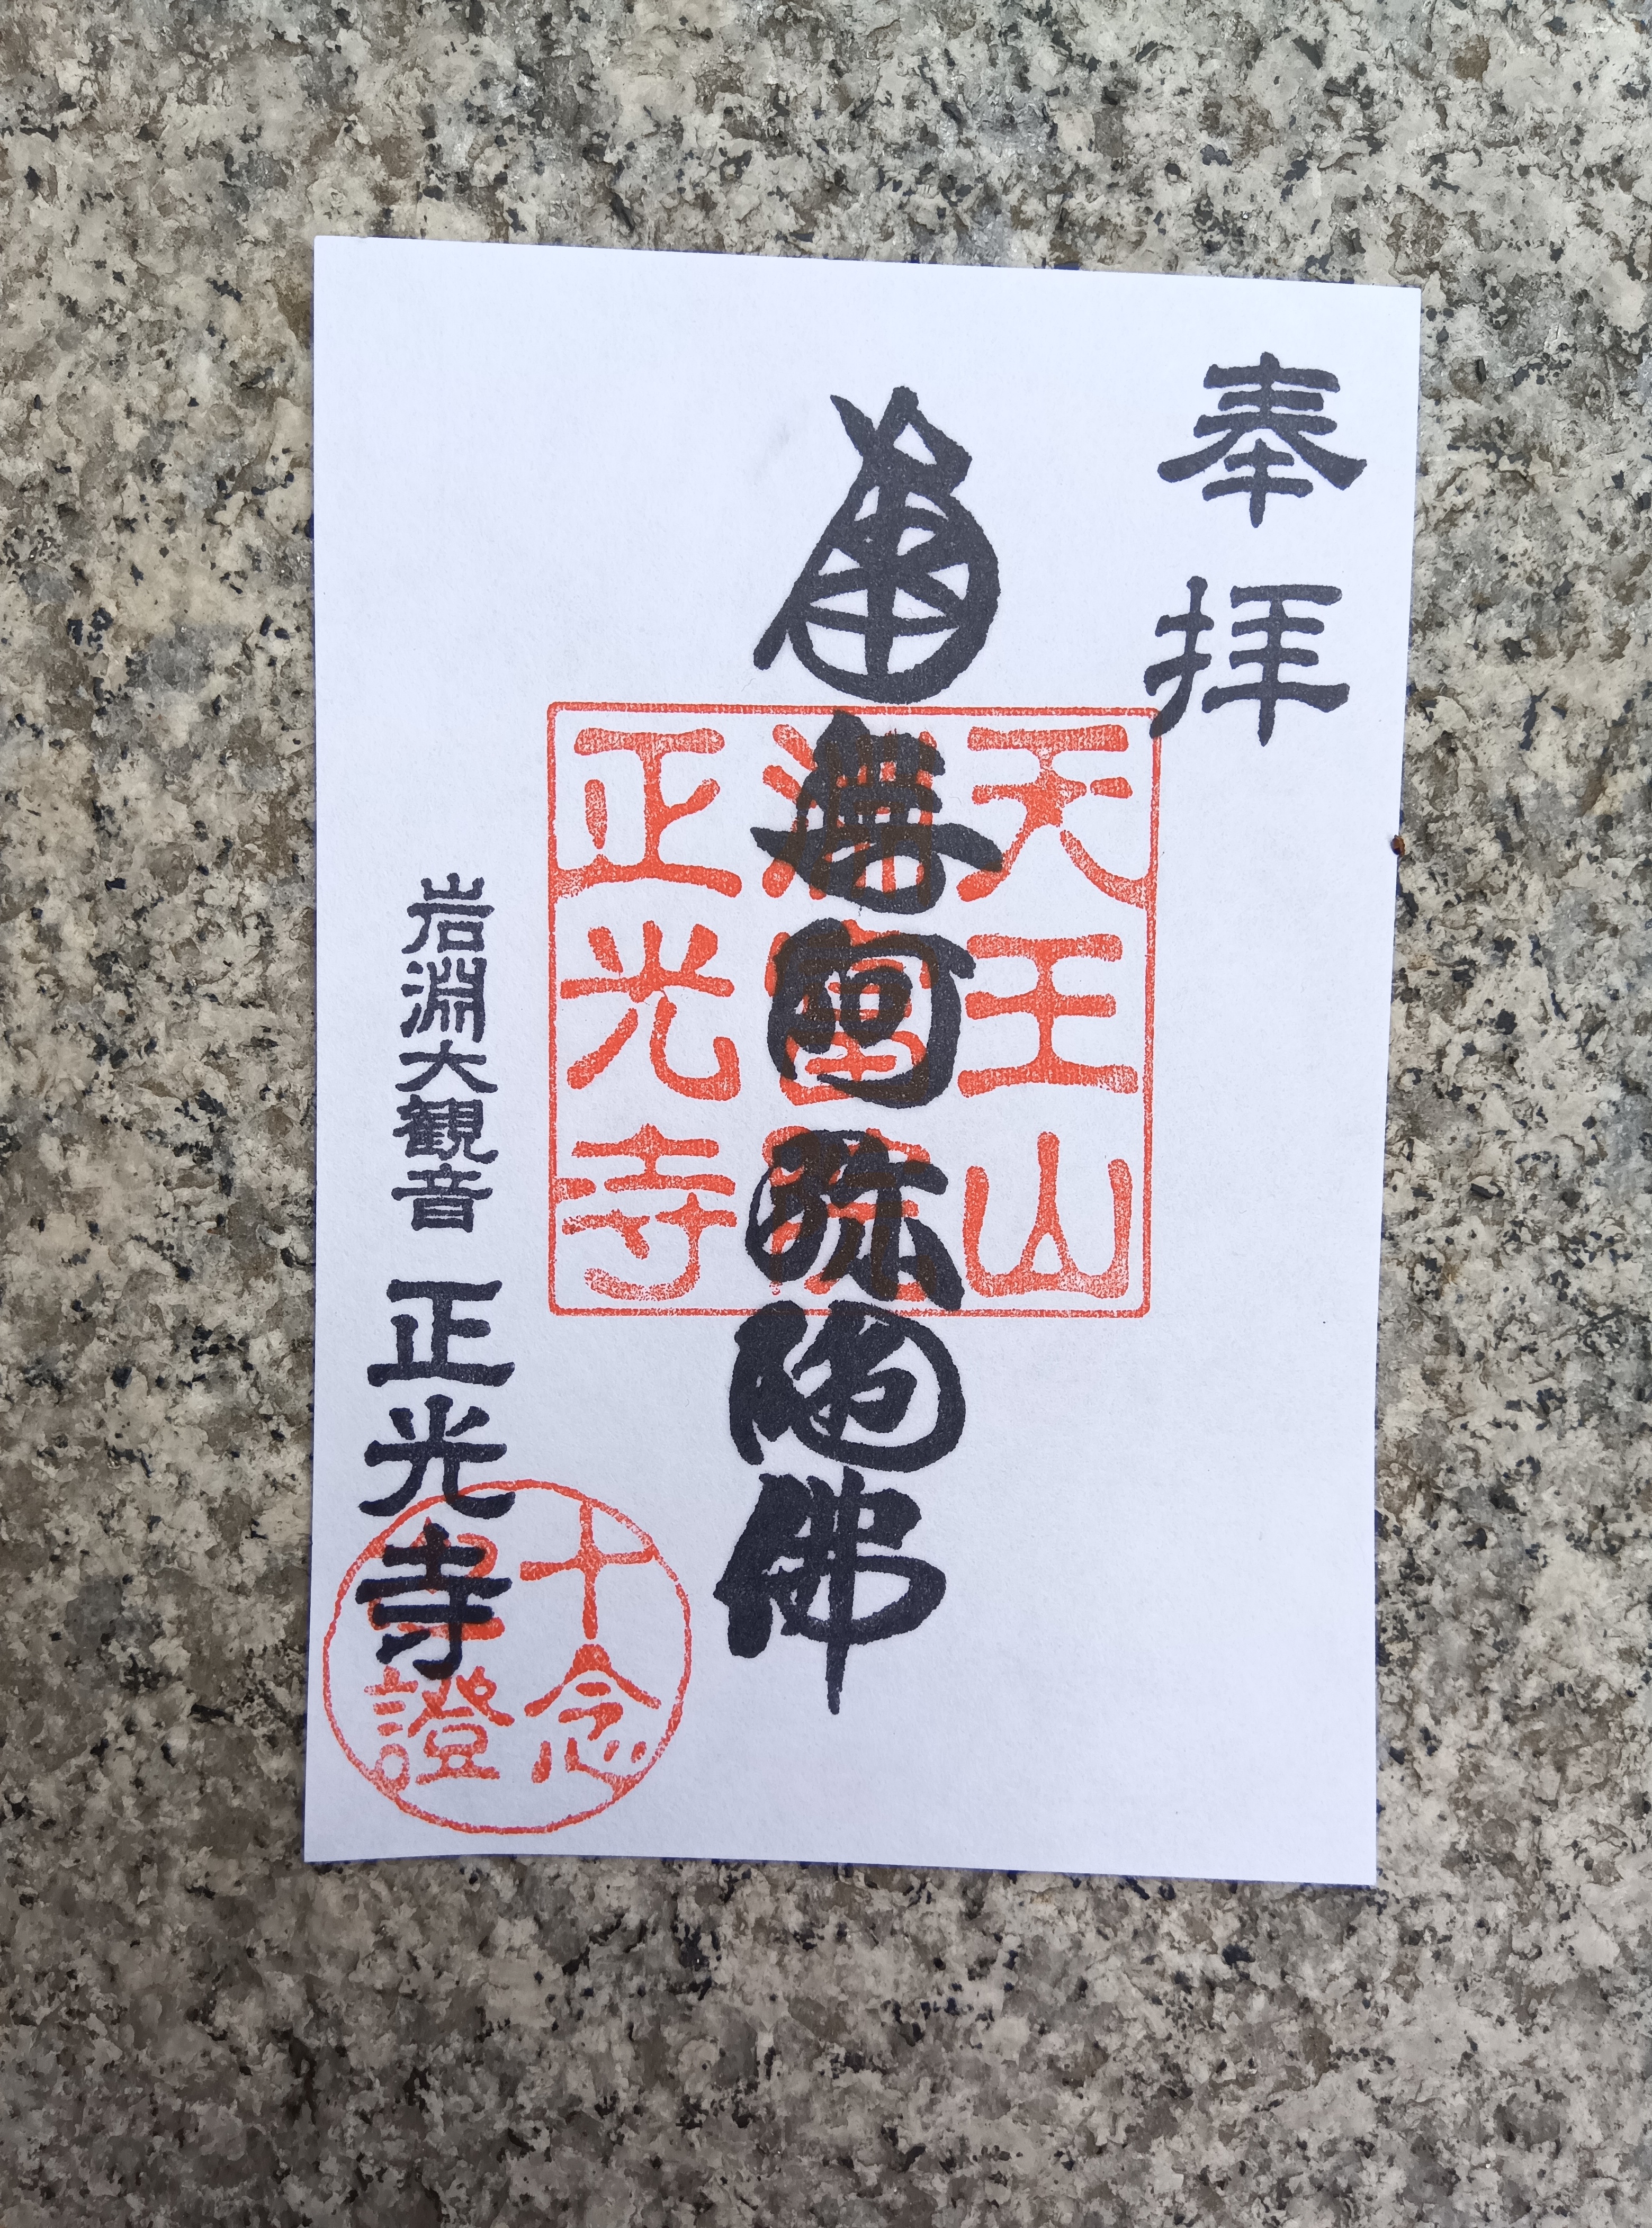 奉拝
天王山
南無阿弥陀佛
正光寺
岩淵大観音 正光寺
十念
證